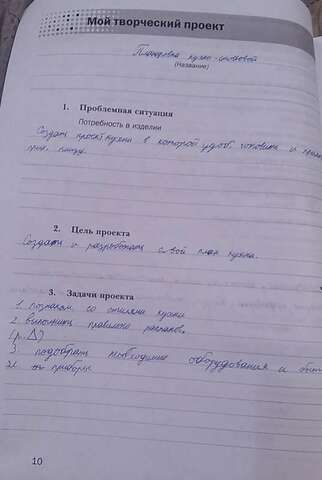 Мой творческий проект
Планировка кухни-столовой
(Название)
1. Проблемная ситуация
Потребность в изделии
Создать проект кухни в которой удоб. готовить и
прин. пищу.
2. Цель проекта
Создать и разработать свой план кухни.
3. Задачи проекта
1. познаком. со стилями кухни
2 выполнить правильно располож.
(р. △)
3. подобрать необходимые оборудования и быт
эл. приборы
10